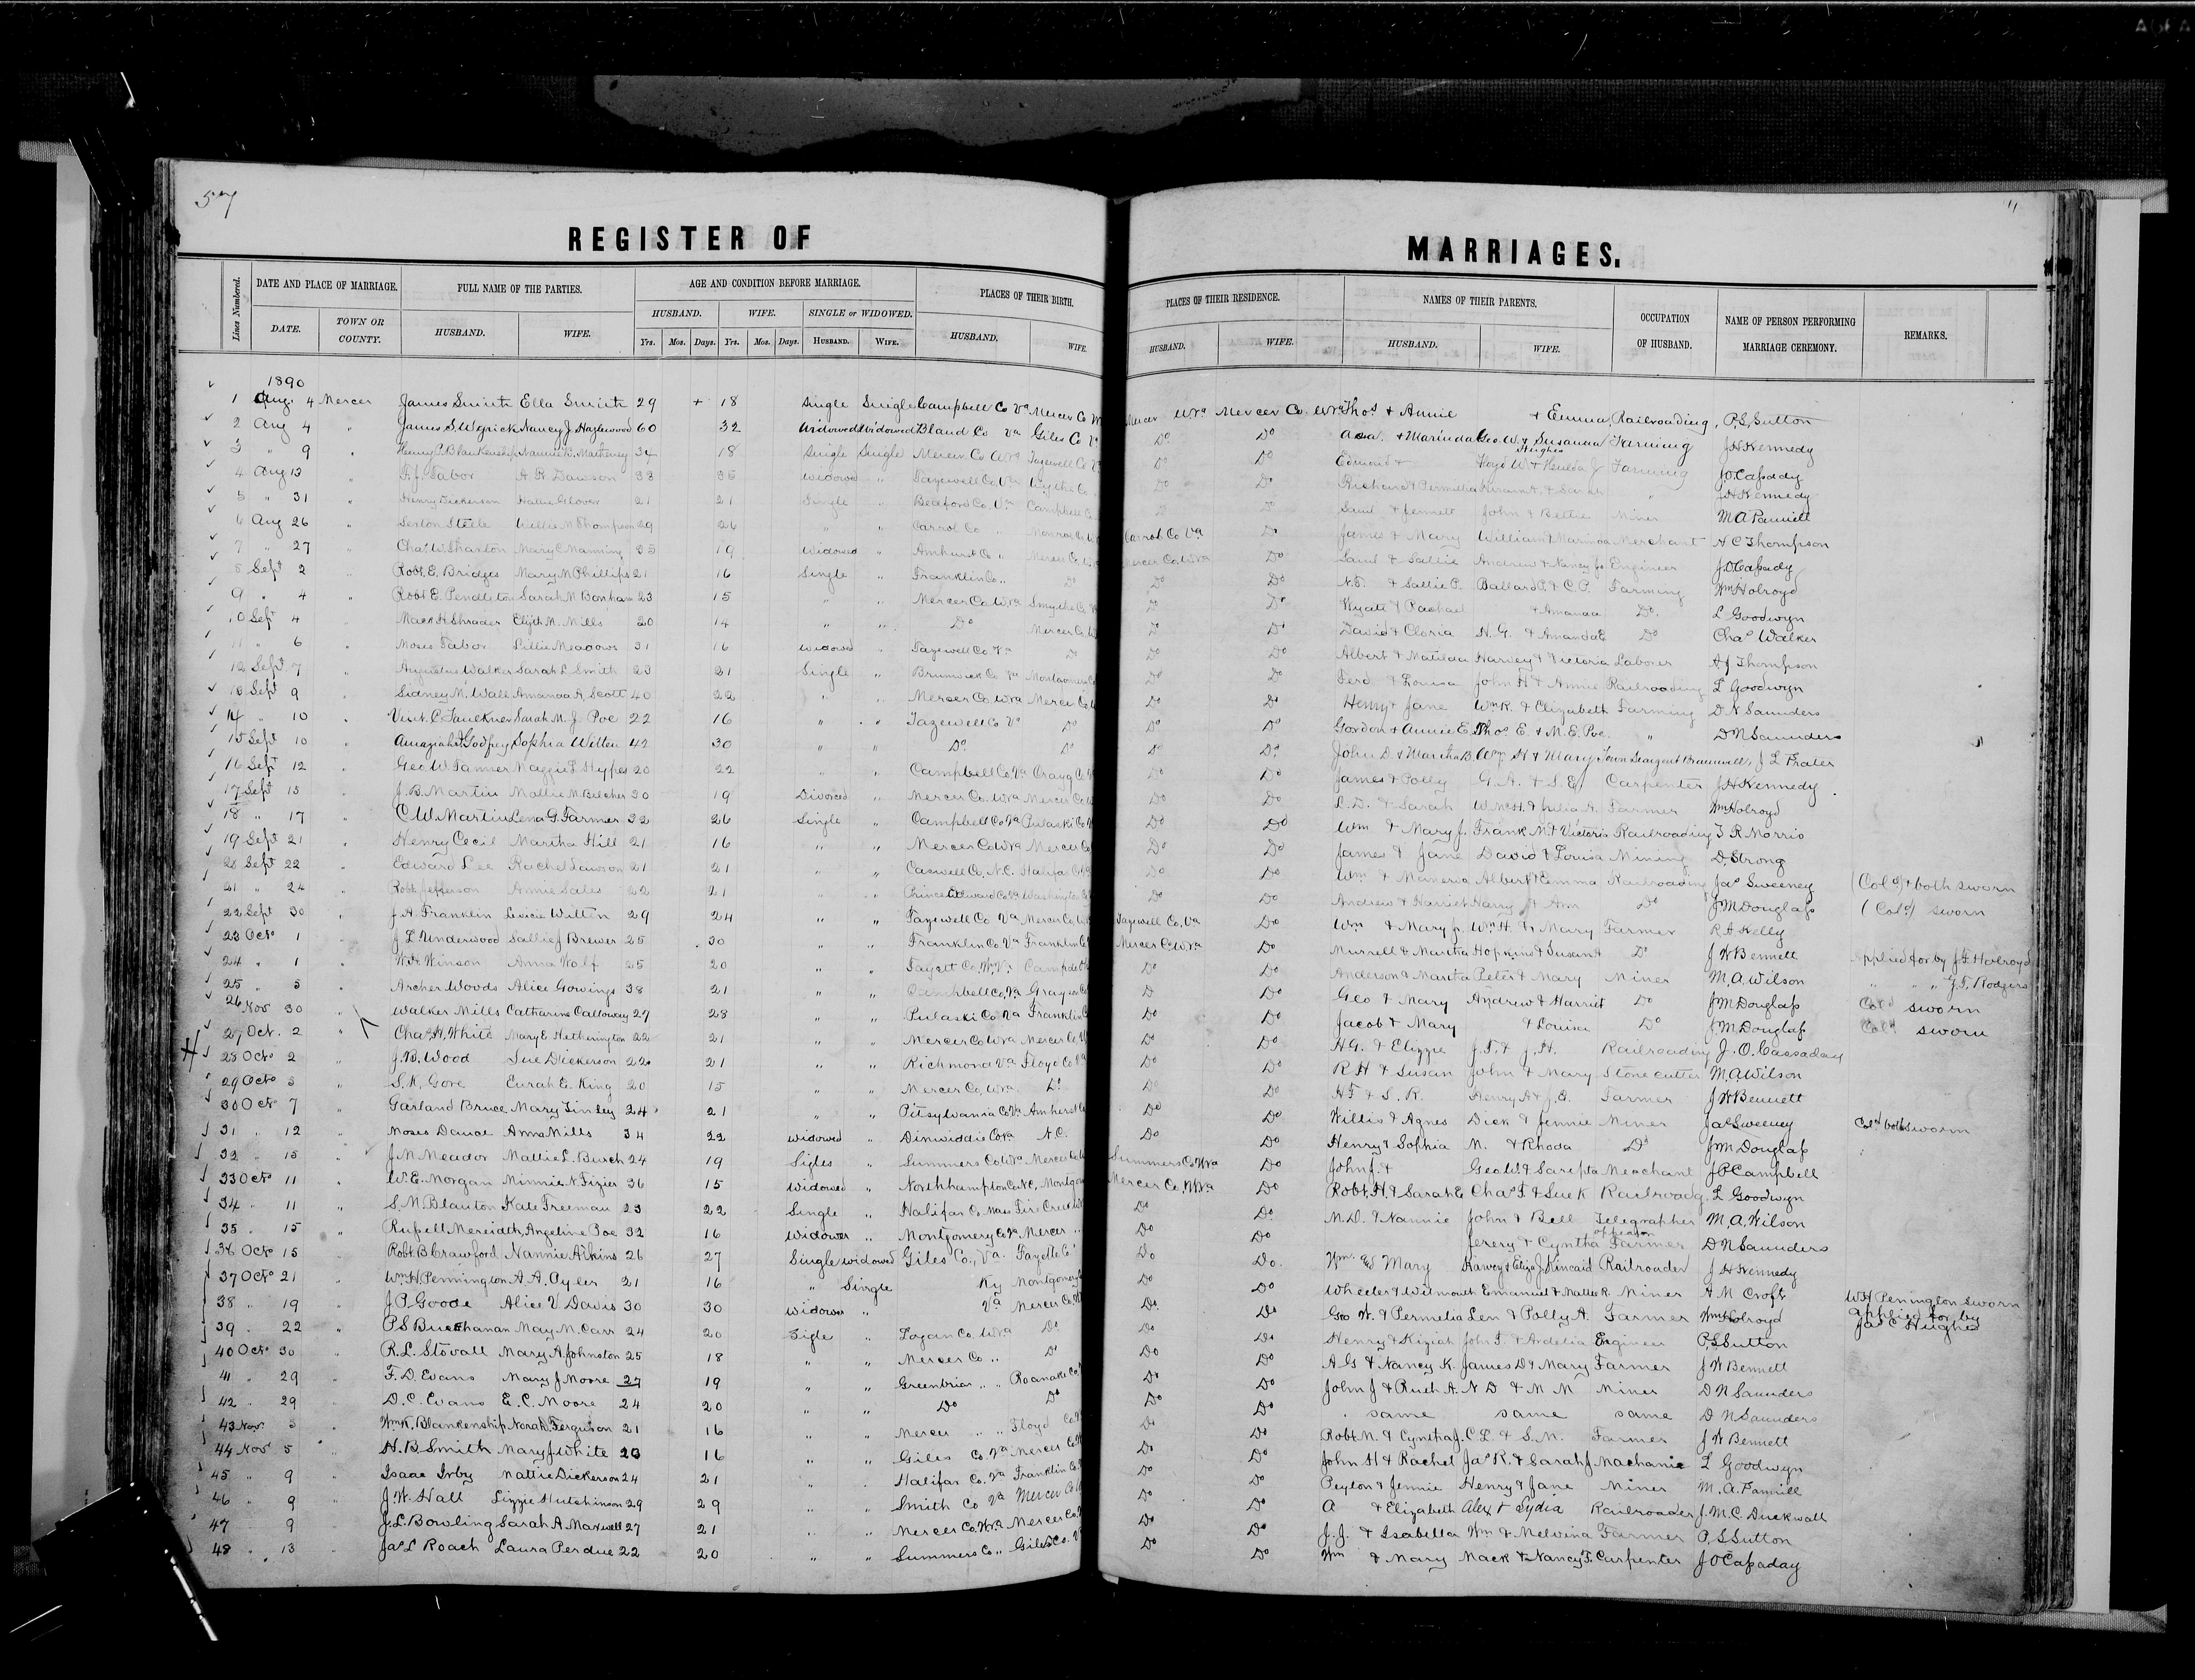 57
11
REGISTER OF MARRIAGES.
Lines Numbered. DATE AND PLACE OF MARRIAGE. FULL NAME OF THE PARTIES. AGE AND CONDITION BEFORE MARRIAGE. PLACES OF THEIR BIRTH. PLACES OF THEIR RESIDENCE. NAMES OF THEIR PARENTS. OCCUPATION OF HUSBAND. NAME OF PERSON PERFORMING MARRIAGE CEREMONY. REMARKS.
DATE. TOWN OR COUNTY. HUSBAND. WIFE. HUSBAND. WIFE. SINGLE or WIDOWED. HUSBAND. WIFE. HUSBAND. WIFE. HUSBAND. WIFE.
Yrs. Mos. Days. Yrs. Mos. Days. HUSBAND. WIFE.
1890
1 Aug. 4 Mercer James Smith Ella Smith 29 + 18 Single Single Campbell Co Va Mercer Co W Mercer Wva Mercer Co. Wva Thos & Annie & Emma Railroading, P.S. Sutton
2 Aug 4 " James S. Wyrick Nancy J. Hazlewood 60 32 Widowed Widowed Bland Co Va Giles Co Va Do Do Asa & Marinda Geo. W. & Susanna Hughes Farming J H Kennedy
3 " 9 " Henry C. Blankenship 34 18 Single Single Mercer Co Wva Tazewell Co V Do Do Edward & Floyd W & Farming J O Caſsady
4 Aug 13 " F. J. Tabor A R Dawson 38 35 Widowed " Tazewell Co. Va Wythe Co Do Do Richard & Permelia Hiram H. & Sarah " J H Kennedy
5 " 31 " Henry Dickerson Hallie Glover 21 21 Single " Bedford Co. Va Campbell Co Do Do Saml & Jennett John & Bettie Miner M A Pannill
6 Aug 26 " Sexton Steele Willie M Thompson 29 26 " " Carrol Co " Monroe Co W Carrol Co Va Do James & Mary William & Marinda Merchant H C Thompson
7 " 27 " Chas. W. Thaxton Mary C Manning 35 19 Widowed " Amhurst Co " Mercer Co. W Mercer Co Wva Do Saml & Sallie Andrew & Nancy Jo Engineer J O Caſsady
8 Sept 2 " Robt. E. Bridges Mary M Phillips 21 16 Single " Franklin Co " Do Do Do N.T. & Sallie P. Ballard P. & C.P. Farming Wm Holroyd
9 " 4 " Robt E. Pendleton Sarah M Bonham 23 15 " " Mercer Co Wva Smythe Co Va Do Do Wyatt & Rachael & Amanda Do. L Goodwyn
10 Sept 4 " Mack H Shrader Elijth M. Mills 20 14 " " Do Mercer Co. W Do Do David & Cloria H. G. & Amanda E Do Chas Walker
11 " 6 " Moses Tabor Lillie Meadows 31 16 Widowed " Tazewell Co Va Do Do Do Albert & Matilda Harvey & Victoria Laborer A J Thompson
12 Sept 7 " Augustus Walker Sarah L Smith 23 21 Single " Brunswick Co Va Montgomery Co Do Do Ferd. & Louisa John H & Annie Railroading L Goodwyn
13 Sept 9 " Sidney M. Wall Amanda A. Scott 40 22 " " Mercer Co. Wva Mercer Co W Do Do Henry & Jane Wm R. & Elizabeth Farming D. N Saunders
14 " 10 " C Faulkner Sarah M. J. Poe 22 16 " " Tazewell Co Va Do Do Do Gordon & Annie E. Thos E. & M. E. Poe. " D N Saunders
15 Sept 10 " Amaziah Godfrey Sophia Witten 42 30 " " Do Do Do Do John D & Martha B. Wm H & Mary Town Seargent Bramwell, J L Prater
16 Sept 12 " Geo W Tanner Maggie L Hypes 20 22 " " Campbell Co Va Craig C V Do Do James & Polly G. A. & S. E. Carpenter J H Kennedy
17 Sept 15 " J. B. Martin Mollie M. Belcher 30 19 Divorced " Mercer Co. Wva Mercer Co W Do Do C. D. & Sarah W. M. & Julia A. Farmer Wm Holroyd
18 " 17 " C. W. Martin Lena G. Farmer 32 26 Single " Campbell Co Va Pulaski Co V Do Do Wm & Mary J. Frank M & Victoria Railroading T R Morris
19 Sept 21 " Henry Cecil Martha Hill 21 16 " " Mercer Co Wva Mercer Co Do Do James & Jane David & Louisa Mining D. Strong
20 Sept 22 " Edward Lee Rachel Lawson 21 21 " " Caswell Co, N.C. Halifax Co Va Do Do Wm & Manerva Albert & Emma Railroading Jas Sweeney (Cold) & both sworn
21 " 24 " Robt. Jefferson Annie Sales 22 21 " " Prince Edward Co Va Washington Do Do Andrew & Harriet Harry & Ann Do J M Douglaſs (Cold) sworn
22 Sept 30 " J. A. Franklin Levicie Witten 29 24 " " Tazewell Co Va Mercer Co. W Tazewell Co. Va Do Wm & Mary J. Wm H. & Mary Farmer R A Kelly
23 Octo 1 " J L Underwood Sallie J Brewer 25 30 " " Franklin Co. Va Franklin C Mercer Co. W.Va Do Murrell & Martha Hopkins & Susan Do J W Bennett Applied for by J. F. Holroyd
24 " 1 " W. H. Winson Anna Wolf 25 20 " " Fayett Co. W.Va. Campbell Do Do Anderson & Martha Peter & Mary Miner M. A. Wilson " " " J. F. Rodgers
25 " 5 " Archer Woods Alice Gowings 38 21 " " Campbell Co, Va Grayson Co D Do Geo & Mary Andrew & Harriet Do J M Douglaſs Cold sworn
26 Nov 30 " Walker Mills Catharine Calloway 27 28 " " Pulaski Co Va Franklin C Do Do Jacob & Mary & Louisa Do J M Douglaſs Cold sworn
27 Oct. 2 " Chas. H. White Mary E Hetherington 22 21 " " Mercer Co Wva Mercer Co, W Do Do H. G. & Elizzie J. T. & J. H. Railroading J. O. Cassaday
28 Octo 2 J. B. Wood Sue Dickerson 22 21 " " Richmond Va Floyd Co Va Do Do R H & Susan John & Mary Stone cutter M. A. Wilson
29 Octo 3 " S. K. Gore Eurah E. King 20 15 " " Mercer Co, Wva. Do Do Do H F & S. R. Henry A & J. E. Farmer J W Bennett
30 Oct 7 " Garland Bruce Mary Tinsley 24 21 " " Pitsylvania Co Va Amherst Co Do Do Willis & Agnes Dick & Jennie Miner Jas Sweeney Cold both sworn
31 " 12 " Moses Danal Anna Mills 34 22 widowed " Dinwiddie Co Va N.C. Do Do Henry & Sophia N. & Rhoda Do J M Douglaſs
32 " 15 " J. M Meador Mattie L. Burch 24 19 Sigles " Summers Co Wva Mercer Co Summers Co Wva Do John J. & Geo W. & Sarepta Merchant J P Campbell
33 Octo 11 " W. E. Morgan Minnie N. Fizier 36 15 Widowed " Northhampton Co N.C. Montgom Mercer Co, W.va Do Robt. H. & Sarah E Chas. T. & Sue K Railroadg. L Goodwyn
34 " 11 " S. M. Blanton Kate Freeman 23 22 Single " Halifax Co. Mass Fire Creek W Do Do M. D. & Nannie John & Bell Telegrapher operator M. A. Wilson
35 " 15 " Rufsell Mereidith Angeline Poe 32 16 Widower " Montgomery Co Va Mercer " Do Do Jerery & Cyntha Farmer D N Saunders
36 Octo 15 " Robt. B. Crawford Nannie Aikins 26 27 Single widowed Giles Co., Va. Fayette Co Do Do. Wm. & Mary Harvey & Eliza J. Kincaid Railroader J H Kennedy
37 Octo 21 " Wm H. Pennington A. A. Oyler 21 16 " Single Ky Montgomery Do Do Wheeler & Wilmouth Emanuel & Nattie R. Miner A M Croft W H Penington sworn
38 " 19 " J. P. Goode Alice V. Davis 30 30 Widower " Va Mercer Co. W Do. Do Geo W. & Permelia Len & Polly A. Farmer Wm Holroyd applied for by Jas C Hughes
39 " 22 " P S Buckhanan May M. Carr 24 20 Sigle " Logan Co. Wva Do Do Do Henry & Kiziah John T. & Ardelia Engineer P. S. Sutton
40 Octo 30 " R. L. Stovall Mary A Johnston 25 18 " " Mercer Co " Do Do Do A G & Nancy K. James D & Mary Farmer J W Bennett
41 " 29 " F. D. Evans Mary J Moore 27 19 " " Greenbriar " " Roanoke Co Do Do John J & Ruth A. N D & M M Miner D N Saunders
42 " 29 " D. C. Evans E. C. Moore 24 20 " " Do Do Do Do same same same D N Saunders
43 Nov. 5 " Wm K. Blankenship Norah Ferguson 21 16 " " Mercer " " Floyd Co Do Do Robt. N. & Cyntha J. C L. & S. M. Farmer J W Bennett
44 Nov 5 " H. B. Smith Mary J White 23 16 " " Giles Co. Va Mercer Co W Do Do John H & Rachel Jas R. & Sarah J Machanic L Goodwyn
45 " 9 " Isaac Irby Mattie Dickerson 24 21 " " Halifax Co. Va Franklin Co Do Do Peyton & Jennie Henry & Jane Miner M. A. Pannill
46 " 9 " J. W. Hall Lizzie Hutchinson 29 29 " " Smith Co Va Mercer Co W Do Do A & Elizabeth Alex & Lydia Railroader J. M. C. Duckwall
47 9 " J. L. Bowling Sarah A Maxwell 27 21 " " Mercer Co. Wva Mercer Co. Do Do J. J. & Isabella Wm & Melvina Farmer P. S Sutton
48 " 13 " Jas L Roach Laura Perdue 22 20 " " Summers Co " Giles Co. V Do Do Wm & Mary Mack & Nancy F. Carpenter J O Caſsaday